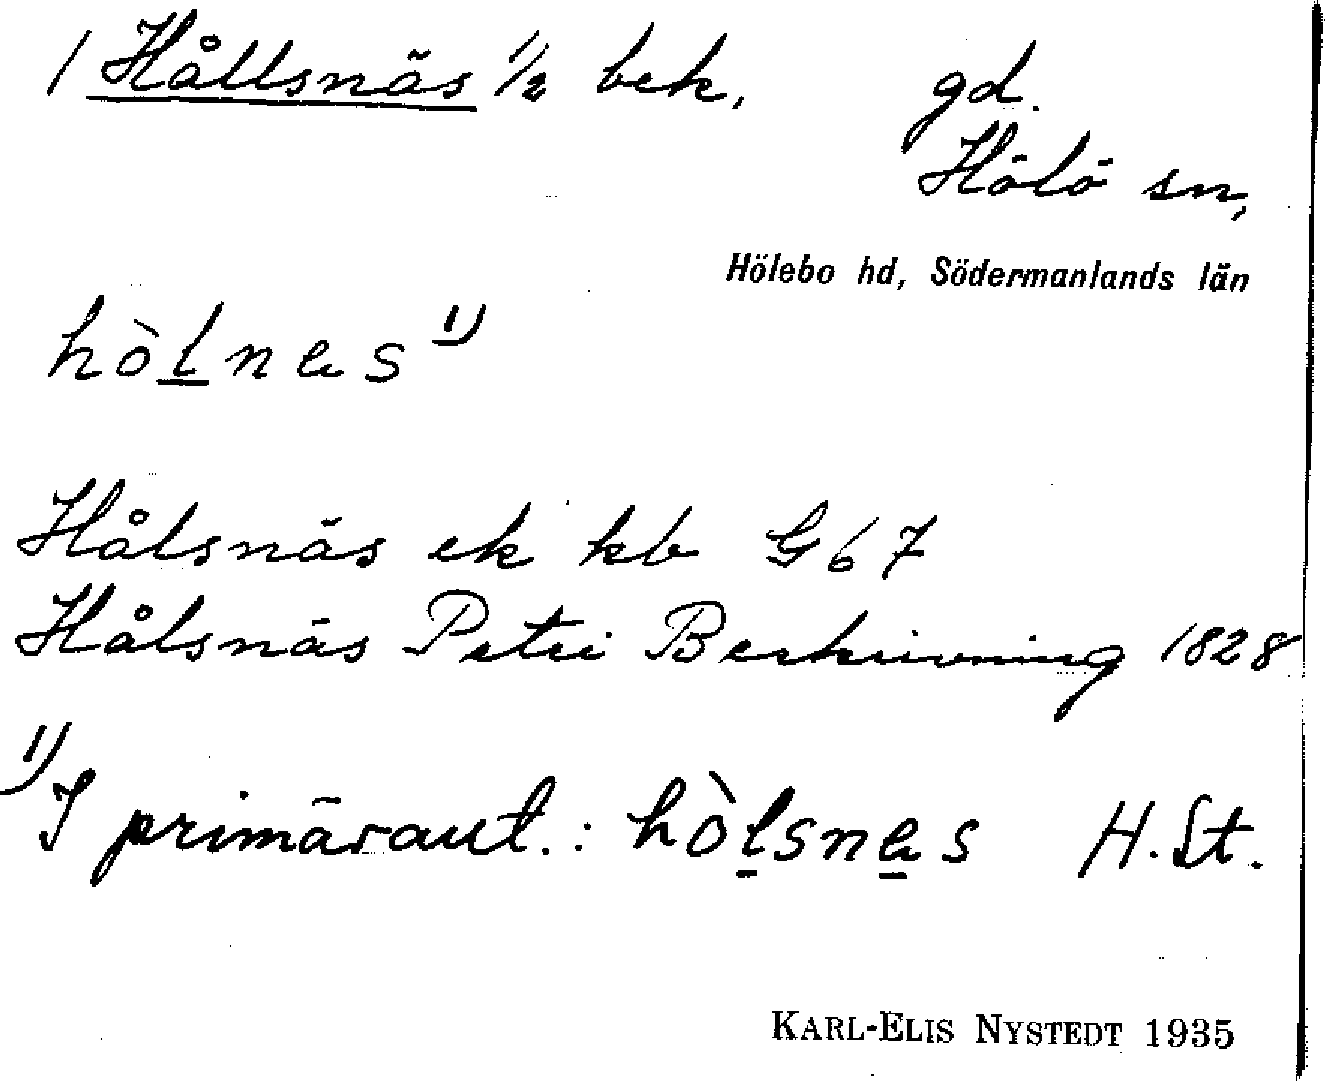 / Hållsnäs ½ bek, gd.
Hölö sn,
Hölebo hd, Södermanlands län
hòlnas 1)
Hålsnäs ek kb G 67
Hålsnäs Petri Beskrivning 1828
1) I primäraut.: hòlsnas H. St.
KARL-ELIS NYSTEDT 1935